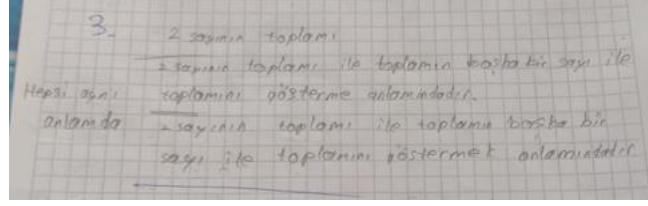 3.
2 sayının toplamı
2 sayının toplamı ile toplamın başka bir sayı ile
toplamını gösterme anlamındadır.
2 sayının toplamı ile toplamın başka bir
sayı ile toplamını göstermek anlamındadır
Hepsi aynı
anlamda